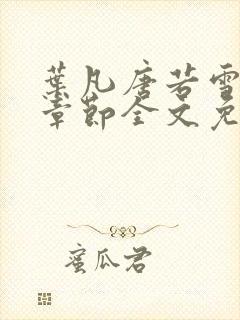 葉凡唐若雪
章節全文免
蜜瓜君